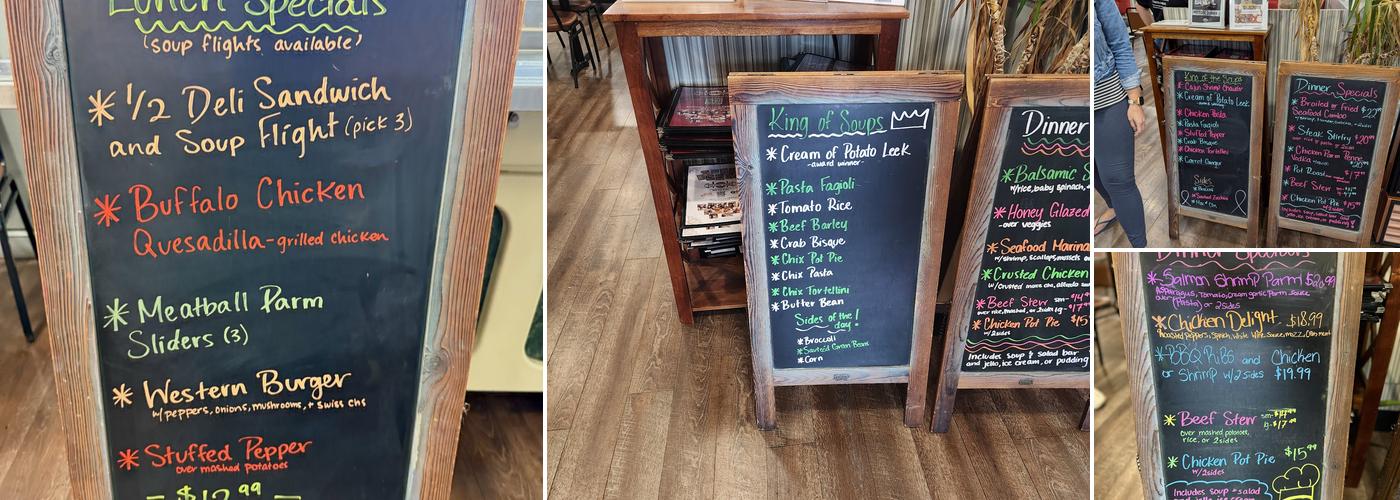 Lunch Specials
(soup flights available)
* 1/2 Deli Sandwich
and Soup Flight (pick 3)
* Buffalo Chicken
Quesadilla - grilled chicken
* Meatball Parm
Sliders (3)
* Western Burger
w/ peppers, onions, mushrooms, + Swiss chs
* Stuffed Pepper
over mashed potatoes
King of Soups
* Cream of Potato Leek
-award winner-
* Pasta Fagioli
* Tomato Rice
* Beef Barley
* Crab Bisque
* Chix Pot Pie
* Chix Pasta
* Chix Tortellini
* Butter Bean
Sides of the day!
* Broccoli
* Sauteed Green Beans
* Corn
Dinner
* Balsamic S
w/rice, baby spinach,
* Honey Glazed
-over veggies
* Seafood Marina
w/shrimp, scallops, mussels
* Crusted Chicken
* Beef Stew
* Chicken Pot Pie $15
w/2 sides
Includes soup & salad bar
and jello, ice cream, or pudding
King of the Soups
* Cajun Shrimp Chowder
* Cream of Potato Leek
* Chicken Pasta
* Pasta Fagioli
* Stuffed Pepper
* Crab Bisque
* Chicken Tortellini
* Carrot Ginger
Sides
* Broccoli
* Mac + Chs
Dinner Specials
* Broiled or Fried
Seafood Combo
* Steak Stirfry
* Chicken Parm Penne
Vodka
* Pot Roast
* Beef Stew
* Chicken Pot Pie
Dinner Specials
* Salmon Shrimp Parm! $20.99
Asparagus, Tomato, Cream garlic Parm sauce
over (Pasta) or 2 sides
* Chicken Delight - $18.99
* BBQ Ribs and Chicken
or Shrimp w/2 sides $19.99
* Beef Stew
over mashed potatoes,
rice, or 2 sides
* Chicken Pot Pie $15.99
w/2 sides
Includes soup + salad